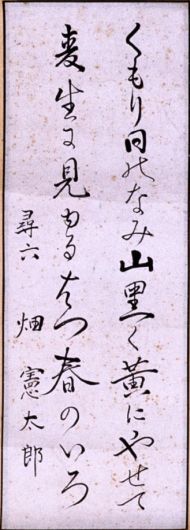 くもり日のなみ山黒く黄にやせて
麦生に見ゆるはつ春のいろ
尋六 畑 憲太郎